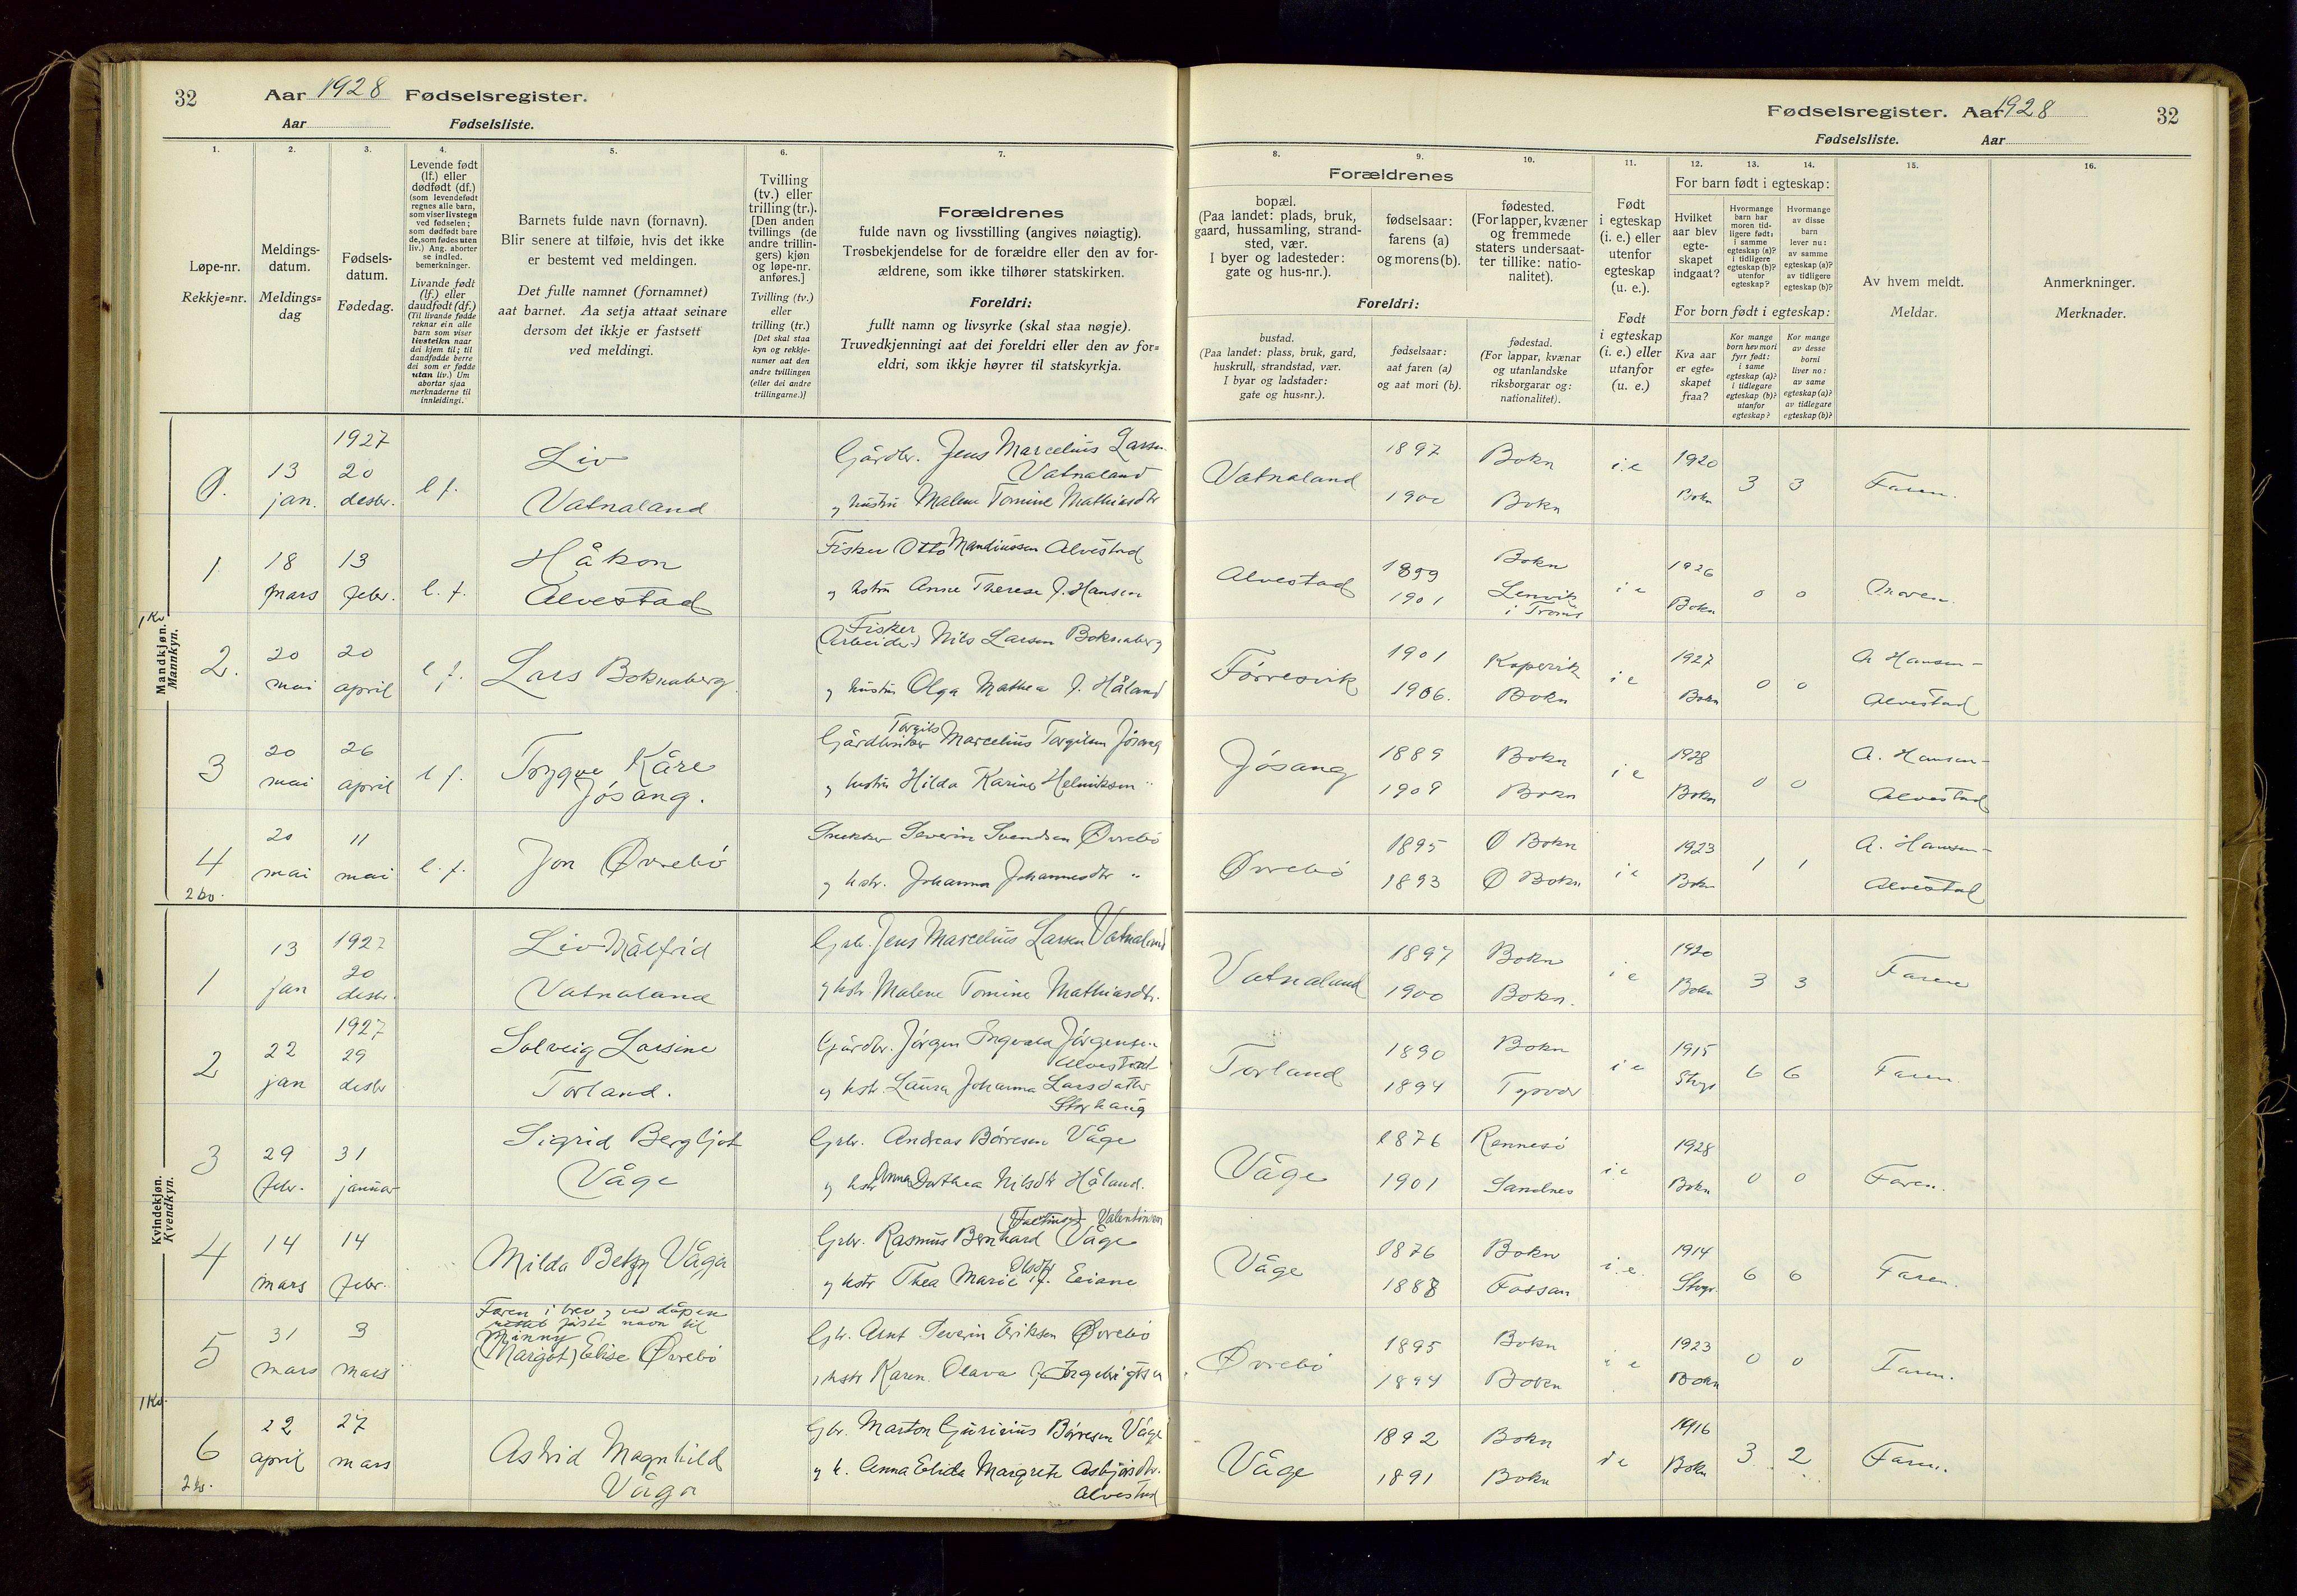 32 Aar 1928 Fødselsregister.
Aar Fødselsliste.
1. 2. 3. 4. 5. 6. 7.
Løpe-nr.
Rekkje=nr.
Meldings-
datum.
Meldings=
dag
Fødsels-
datum.
Fødedag.
Levende født
(lf.) eller
dødfødt (df.)
(som levendefødt
regnes alle barn,
som viser livstegn
ved fødselen;
som dødfødt bare
de, som fødes uten
liv.) Ang. aborter
se indled.
bemerkninger.
Livande født
(lf.) eller
daudfødt (df.)
(Til livande fødde
reknar ein alle
barn som viser
livsteikn naar
dei kjem til; til
daudfødde berre
dei som er fødde
utan liv.) Um
abortar sjaa
merknaderne til
innleidingi.
Barnets fulde navn (fornavn).
Blir senere at tilføie, hvis det ikke
er bestemt ved meldingen.
Det fulle namnet (fornamnet)
aat barnet. Aa setja attaat seinare
dersom det ikkje er fastsett
ved meldingi.
Tvilling
(tv.) eller
trilling (tr.).
[Den anden
tvillings (de
andre trillin-
gers) kjøn
og løpe-nr.
anføres.]
Tvilling (tv.)
eller
trilling (tr.)
[Det skal staa
kyn og rekkje-
numer aat den
andre tvillingen
(eller dei andre
trillingarne.)]
Forældrenes
fulde navn og livsstilling (angives nøiagtig).
Trosbekjendelse for de forældre eller den av for-
ældrene, som ikke tilhører statskirken.
Foreldri:
fullt namn og livsyrke (skal staa nøgje).
Truvedkjenningi aat dei foreldri eller den av for=
eldri, som ikkje høyrer til statskyrkja.
Mandkjøn.
Mannkyn.
0.
13
jan.
1927
20
desbr.
l f.
Liv
Vatnaland
Gårdbr. Jens Marcelius Larsen
Vatnaland
og hustru Malene Tomine Mathiasdtr
1
18
mars
13
febr.
l. f.
Håkon
Alvestad
Fisker Otto Mandiussen Alvestad
og hstru Anne Therese f. Hansen
1 Kv.
2.
20
mai
20
april
l f.
Lars Boknaberg
Fisker
(Arbeider) Nils Larsen Boknaberg
og hustru Olga Mathea f. Håland
3
20
mai
26
april
l f.
Trygve Kåre
Jósang.
Torgils
Gårdbruker Marcelius Torgilsen Jósang
og hustru Hilda Karine Helmiksen "
4
2 kv.
20
mai
11
mai
l. f.
Jon Øvrebó
Snekker Severin Svendsen Øvrebó
og hstr. Johanna Johannesdtr "
Kvindekjøn.
Kvendkyn.
1
13
jan
1927
20
desbr.
Liv Målfrid
Vatnaland
Grbr. Jens Marcelius Larsen Vatnaland
og hstr. Malene Tomine Mathiasdtr.
2
22
jan
1927
29
desbr
Solveig Larsine
Torland.
Gårdbr. Jórgen Ingvald Jórgensen
Alvestad
og hstr. Laura Johanna Larsdatter
Storhaug
3
29
febr.
31
januar
Sigrid Bergljot
Våge
Grbr. Andreas Bórresen Våge
og hstr Anna Dorthea Nilsdtr Håland.
4
14
mars
14
febr.
Milda Betzy Våga
Valentinsen
Grbr. Rasmus Bernhard Våge
og hstr Thea Marie Olsdtr f. Eeiane
5
31
mars
3
mars
Faren i brev og ved dåpen
rettet fórste navn til
Minny
(Margot) Elise Øvrebó
Gbr. Arnt Severin Eriksen Øvrebó
og hstr Karen Olava f. Ingebrigtsen
1 Kv.
6
2 kv.
22
april
27
mars
Astrid Magnhild
Våga
Gbr. Marton Gurinius Bórresen Våge
og h. Anna Elida Margrete Asbjórsdtr.
Alvestad
Fødselsregister. Aar 1928 32
Fødselsliste. Aar
8. 9. 10. 11. 12. 13. 14. 15. 16.
Forældrenes
bopæl.
(Paa landet: plads, bruk,
gaard, hussamling, strand-
sted, vær.
I byer og ladesteder:
gate og hus-nr.).
fødselsaar:
farens (a)
og morens (b).
fødested.
(For lapper, kvæner
og fremmede
staters undersaat-
ter tillike: natio-
nalitet).
Foreldri:
bustad.
(Paa landet: plass, bruk, gard,
huskrull, strandstad, vær.
I byar og ladstader:
gate og hus=nr.).
fødselsaar:
aat faren (a)
og aat mori (b).
fødestad.
(For lappar, kvænar
og utanlandske
riksborgarar og:
nationalitet).
Født
i egteskap
(i. e.) eller
utenfor
egteskap
(u. e.).
Født
i egteskap
(i. e.) eller
utanfor
(u. e.)
For barn født i egteskap:
Hvilket
aar blev
egte-
skapet
indgaat?
Hvormange
barn har
moren tid-
ligere født:
i samme
egteskap (a)?
i tidligere
egteskap (b)?
utenfor
egteskap?
Hvormange
av disse
barn
lever nu:
av samme
egteskap (a)?
av tidligere
egteskap (b)?
For born født i egteskap:
Kva aar
er egte=
skapet
fraa?
Kor mange
born hev mori
fyrr født:
i same
egteskap (a)?
i tidlegare
egteskap (b)?
utanfor
egteskap?
Kor mange
av desse
borni
liver no:
av same
egteskap (a)?
av tidlegare
egteskap (b)?
Av hvem meldt.
Meldar.
Anmerkninger.
Merknader.
Vatnaland
1897
1900
Bokn
Bokn
i. e
1920
Bokn
3 3 Faren.
Alvestad
1899
1901
Bokn
Lenvik
i Troms
i e
1926
Bokn
0 0 Moren.
Fórresvik
1901
1906.
Kopervik
Bokn
i e
1927
Bokn
0 0
A. Hansen-
Alvestad
Jósang
1889
1909
Bokn
Bokn
i e
1928
Bokn
0 0
A. Hansen-
Alvestad
Øvrebó
1895
1893
Ø Bokn
Ø Bokn
i e
1923
Bokn
1 1
A. Hansen-
Alvestad
Vatnaland
1897
1900
Bokn
Bokn.
i e
1920
Bokn
3 3 Faren
Torland
1890
1894
Bokn
Tysvær
i e
1915
Skgs
6 6 Faren.
Våge
1876
1901
Rennesó
Sandnes
i e
1928
Bokn
0 0 Faren.
Våge
1876
1888
Bokn
Fossan
i. e.
1914
Stvgr.
6 6 Faren.
Øvrebó
1895
1894
Bokn
Bokn
i e
1923
Bokn
0 0 Faren.
Våge
1892
1891
Bokn
Bokn
i e
1916
Bokn
3 2 Faren.